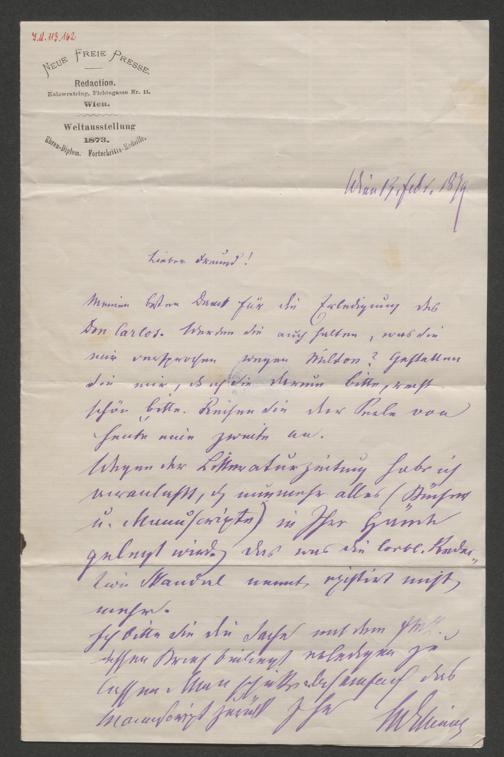 I.N. 113.142
NEUE FREIE PRESSE.
Redaction.
Kolowratring, Fichtegasse Nr. 11.
Wien.
Weltausstellung
1873.
Ehren-Diplom. Fortschritts-Medaille.
Wien, Febr. 1879
Lieber Freund!
Meinen besten Dank für die Erledigung des
Don Carlos. Werden Sie auch halten, was Sie
mir versprochen wegen Milton? Gestatten
Sie mir, daß ich Sie darum bitte, recht
schön bitte. Reihen Sie der Perle von
heute eine zweite an.
Wegen der Litteraturzeitung habe ich
veranlaßt, daß nunmehr alles (Bücher
u. Manuscripte) in Ihre Hände
gelegt wird; das was die
nennt, existirt nicht
mehr.
Ich bitte Sie die Sache mit dem
dessen Brief beiliegt erledigen zu
lassen. Man einfach das
Manuscript zurück. Ihr